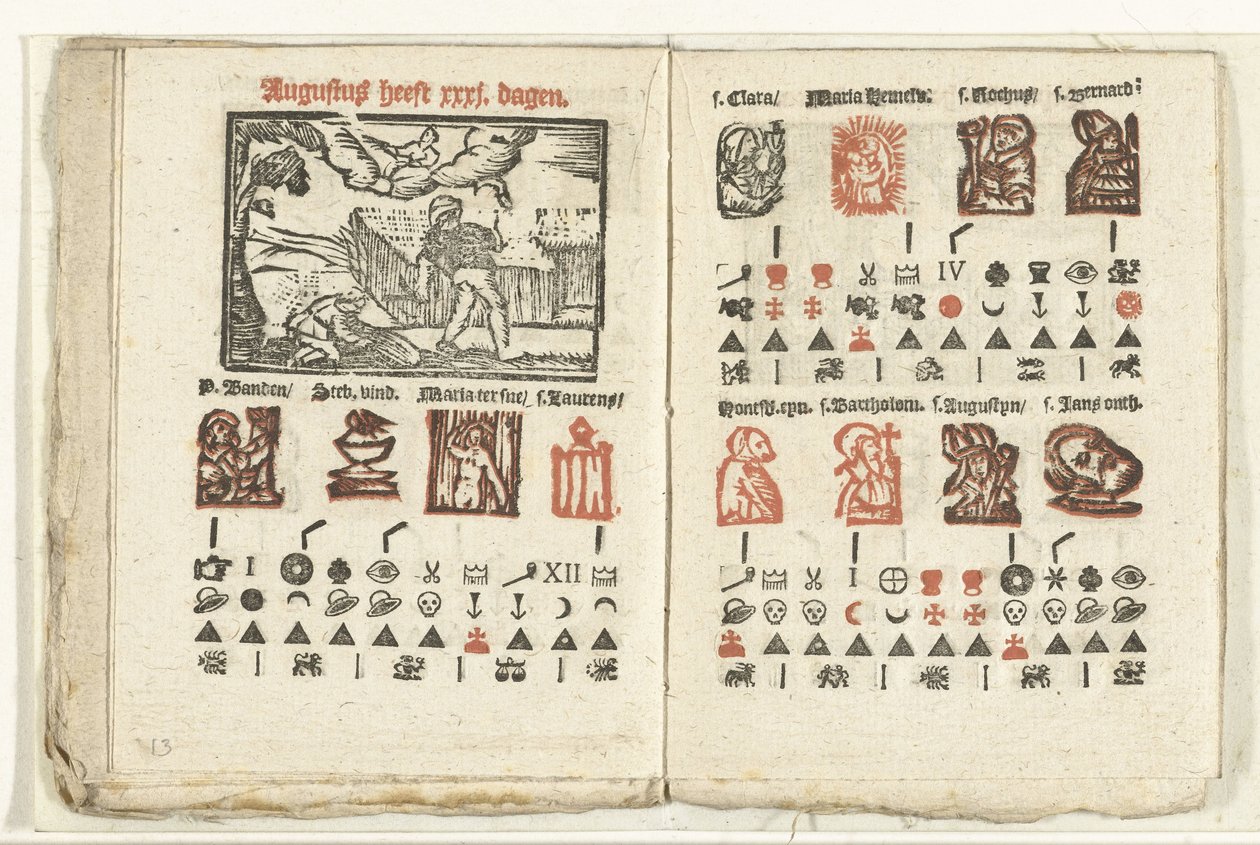 Augustus heeft xxxj. dagen.
P. Banden/ Steb. vind. Maria ter sne/ s. Laurens/
I XII
13
s. Clara/ Maria Hemelv. s. Rochus/ s. Bernard:
IV
s. Bartholom. s. Augustyn/ s. Jans onth.
I